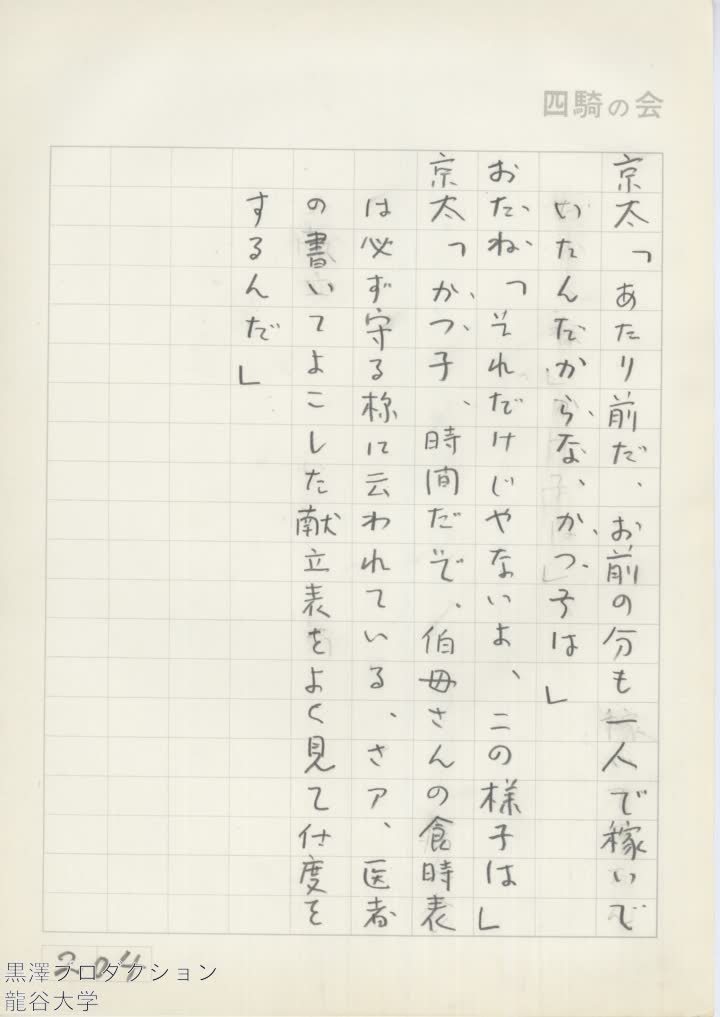 四騎の会
京太「あたり前だ、お前の分も一人で稼いで
いたんだからな、かつ子は」
おたね「それだけじゃないよ、この様子は」
京太「かつ子、時間だぞ、伯母さんの食時表
は必ず守る様に云われている、さア、医者
の書いてよこした献立表をよく見て仕度を
するんだ」
204
黒澤プロダクション
龍谷大学